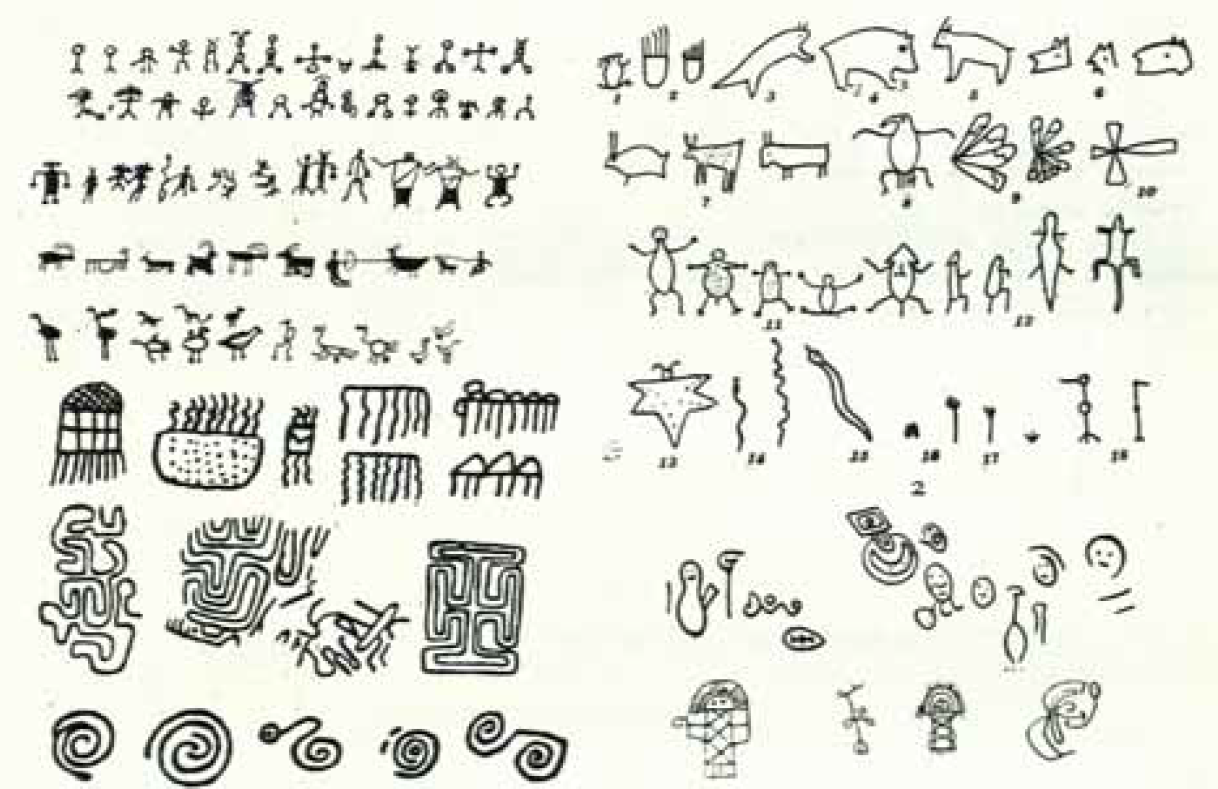 1 2 3 4 5 6
7 8 9 10
11 12
13 14 15 16 17 18
2